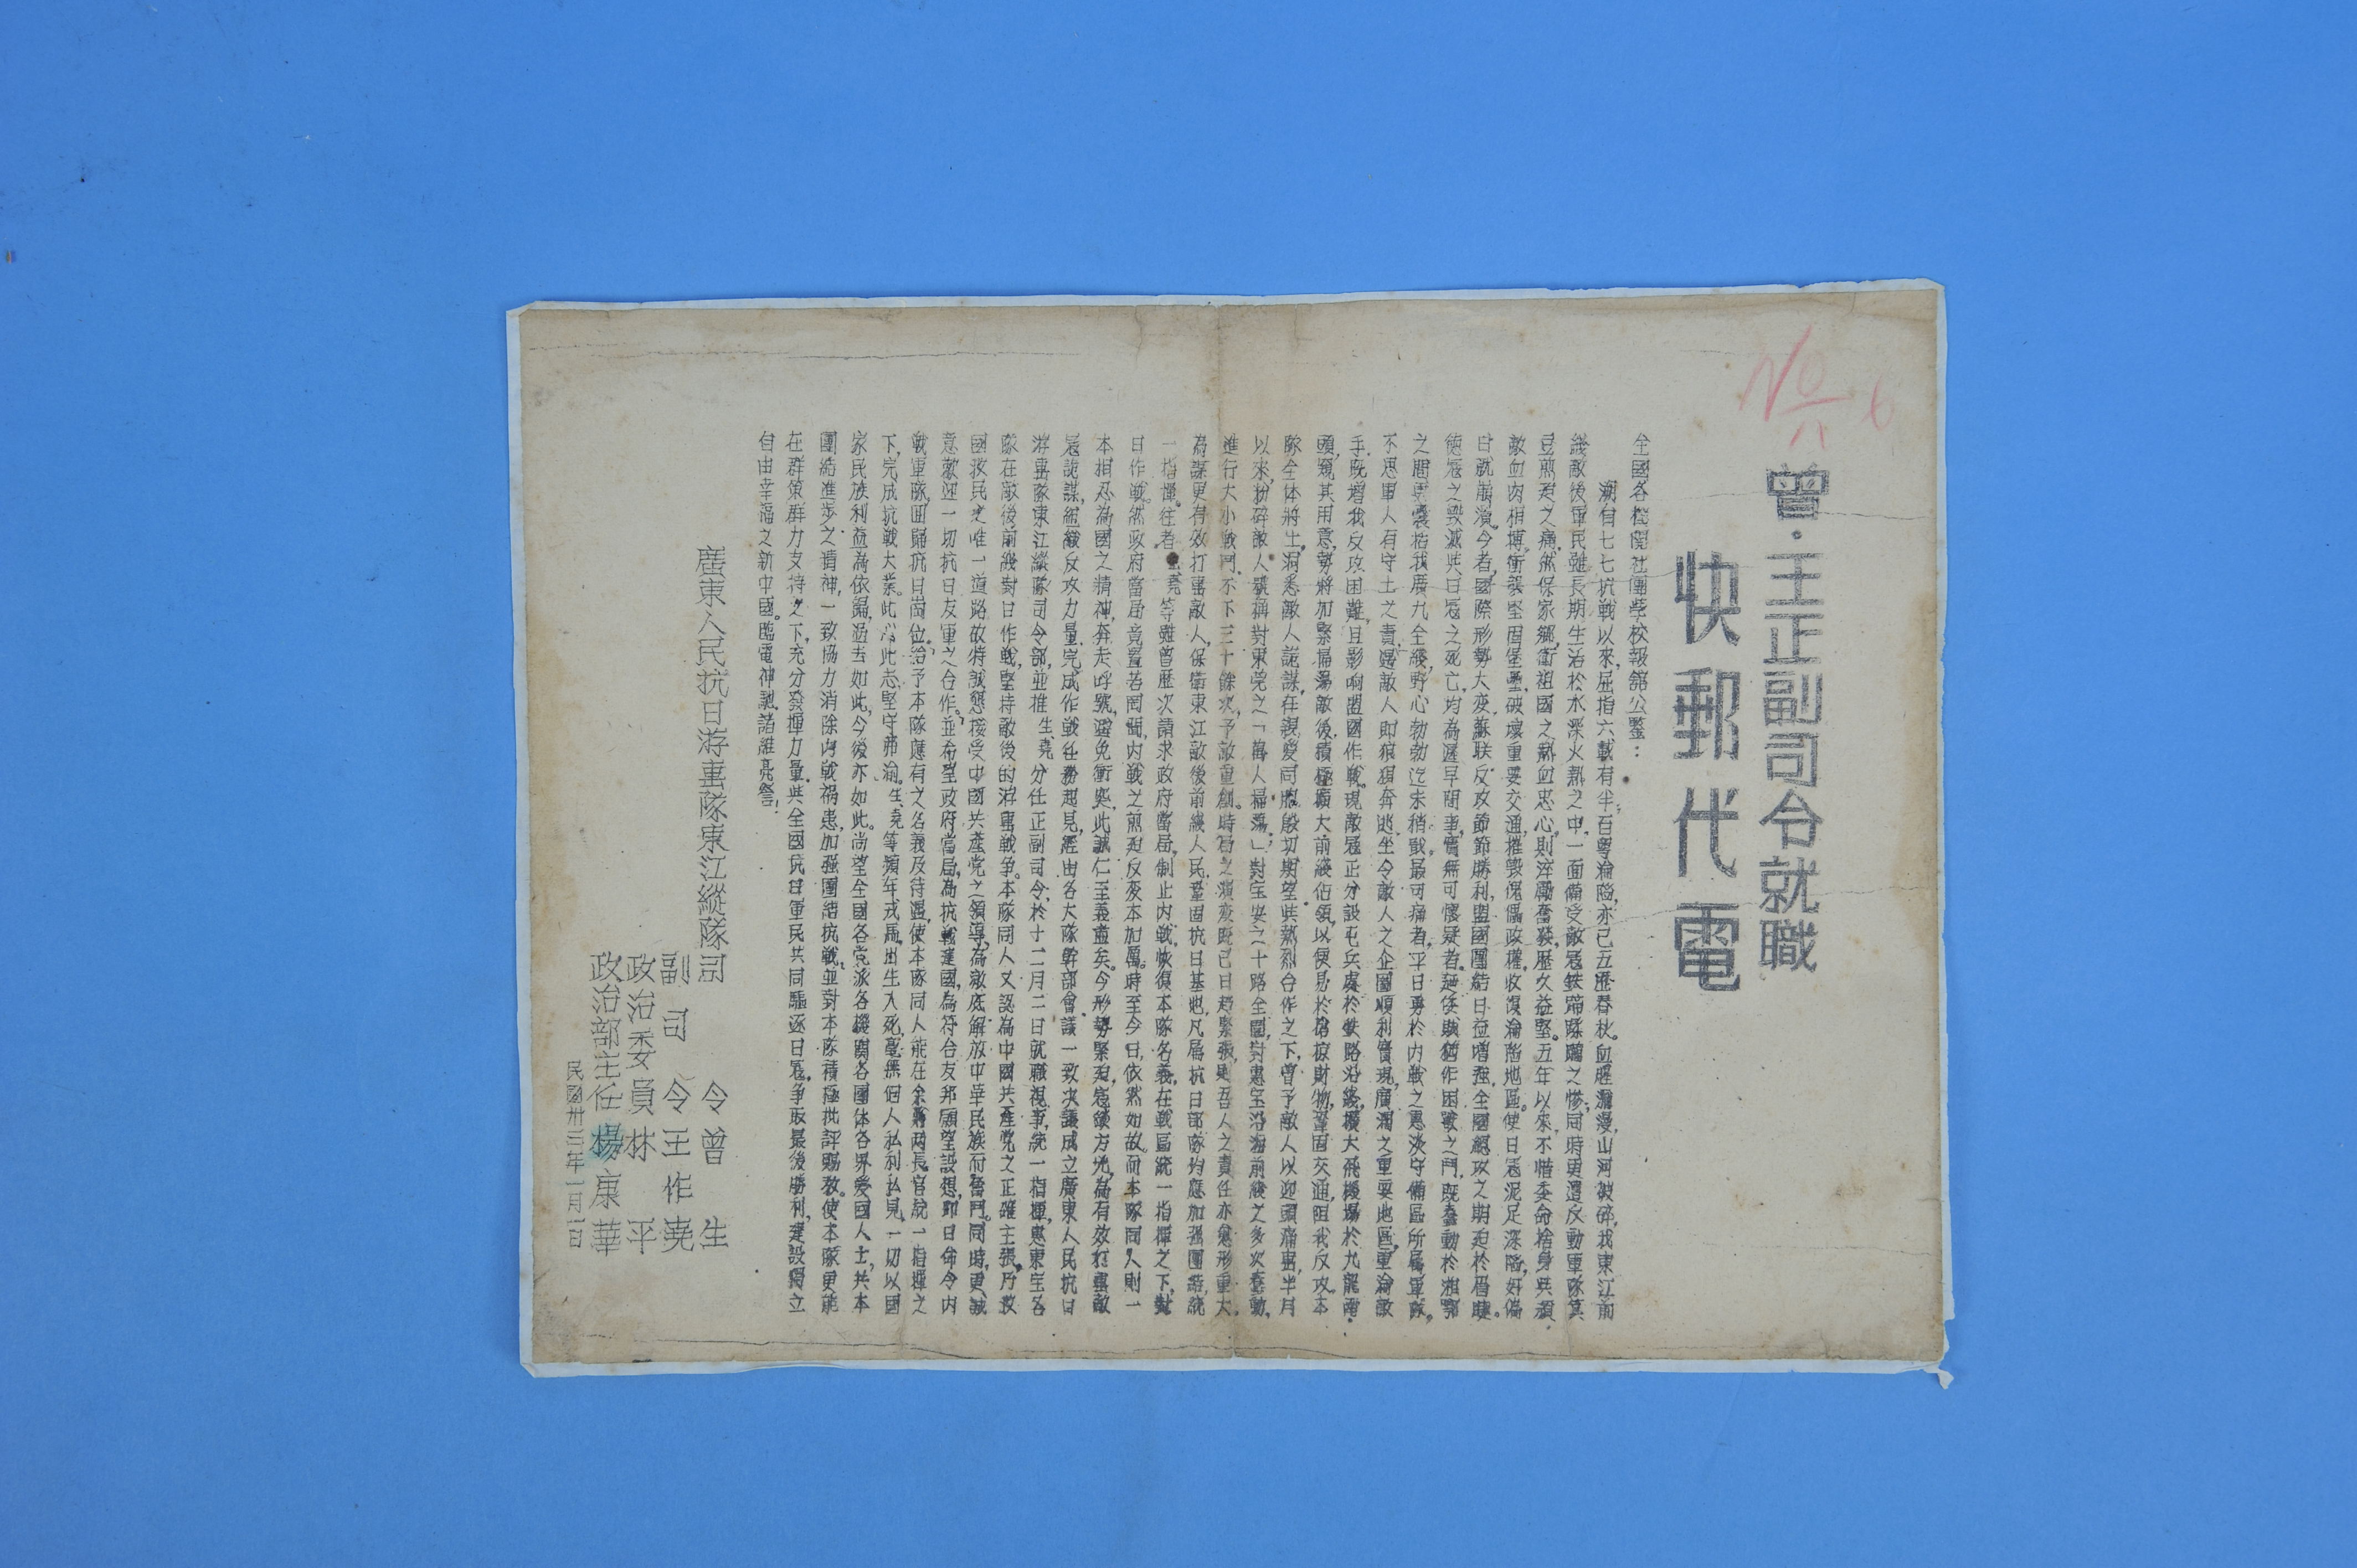 No 6
曾·王正副司令就職
快郵代電
全國各機関社團學校報舘公鑒：
溯自七七抗戰以來，屈指六載有半，百粤淪陷，亦已五歷春秋。血腥瀰漫，山河破碎，我東江前
綫敵後軍民雖長期生活於水深火熱之中，一面備受敵寇鉄蹄蹂躪之慘，同時更遭反動軍隊箕
豆煎迫之痛，然保家鄉，衛祖國之熱血忠心，則淬勵奮發，歷久益堅。五年以來，不惜委命捨身與頑
敵血肉相搏，衝鋒堅固堡壘，破壞重要交通，摧毀傀儡政權，收復淪陷地區。使日寇泥足深陷，奸偽
日就崩潰。今者，國際形勢大変，蘇联反攻節節勝利，盟國團結日益增强，全國總攻之期迫於眉睫。
德寇之毀滅與日寇之死亡，均為遲早間事，實無可懷疑者。迺任輿猶作困獸之鬥，既蠢動於湘鄂
之間，更囊括我廣九全綫，野心勃勃迄未稍戢。最可痛者，平日勇於內戰之惠淡守備區所屬軍隊，
不思軍人有守土之責，遇敵人即狼狽奔逃，坐令敵人之企圖順利實現，廣濶之重要地區，重淪敵
手，既增我反攻困難，且影响盟國作戰。現敵寇正分設屯兵處於鉄路沿綫，擴大飛機場於九龍南
頭，窺其用意，勢將加緊掃蕩敵後，積極擴大前綫佔領，以便易於搶掠財物，鞏固交通，阻我反攻。本
隊全体將士，洞悉敵人詭謀，在親愛同胞殷切期望與熱烈合作之下，曾予敵人以迎頭痛擊，半月
以來，粉碎敵人號稱對東莞之「萬人掃蕩」，對宝安之十路全圍，對惠宝沿海前綫之多次蠢動，
進行大小戰鬥，不下三十餘次，予敵重創。時局之演変既已日趋緊張，則吾人之責任亦愈形重大。
為謀更有效打擊敵人，保衛東江敵後前綫人民，鞏固抗日基地，凡屬抗日部隊均應加强團結，統
一指揮。往者，堯等雖曾歷次請求政府當局，制止內戰，恢復本隊名義，在戰區統一指揮之下，對
日作戰。然政府當局竟置若罔聞，內戰之煎迫反変本加厲。時至今日，依然如故。而本隊同人則一
本相忍為國之精神，奔走呼號，避免衝突，此誠仁至義盡矣。今形勢緊迫，寇鋒方光，為有效打擊敵
寇詭謀，組織反攻力量，完成作戰任務起見，經由各大隊幹部會議，一致决議成立廣東人民抗日
游擊隊東江縱隊司令部，並推生、堯分任正副司令，於十二月二日就職視事，統一指揮惠東宝各
隊在敵後前綫對日作戰，堅持敵後的游擊戰爭。本隊同人又認為中國共產党之正確主張，乃救
國救民之唯一道路，故特誠懇接受中國共產党之領導，為澈底解放中華民族而奮鬥。同時，更誠
意歡迎一切抗日友軍之合作。並希望政府當局，為抗戰建國，為符合友邦願望設想，即日命令内
戰軍隊，回歸抗日崗位，给予本隊應有之名義及待遇，使本隊同人能在余蔣兩長官統一指揮之
下，完成抗戰大業。此心此志，堅守弗渝。生、堯等頻年戎馬，出生入死，毫無個人私利私見，一切以國
家民族利益為依歸，過去如此，今後亦如此。尚望全國各党派各機関各團体各界爱國人士，共本
團結進步之精神，一致協力消除內戰禍患，加强團結抗戰，並對本隊積極批評賜教。使本隊更能
在群策群力支持之下，充分發揮力量，與全國民日軍民共同驅逐日寇，爭取最後勝利，建設獨立
自由幸福之新中國。臨電神馳，諸維亮詧！
廣東人民抗日游擊隊東江縱隊司令曾生
副司令王作堯
政治委員林平
政治部主任楊康華
民國卅三年一月一日